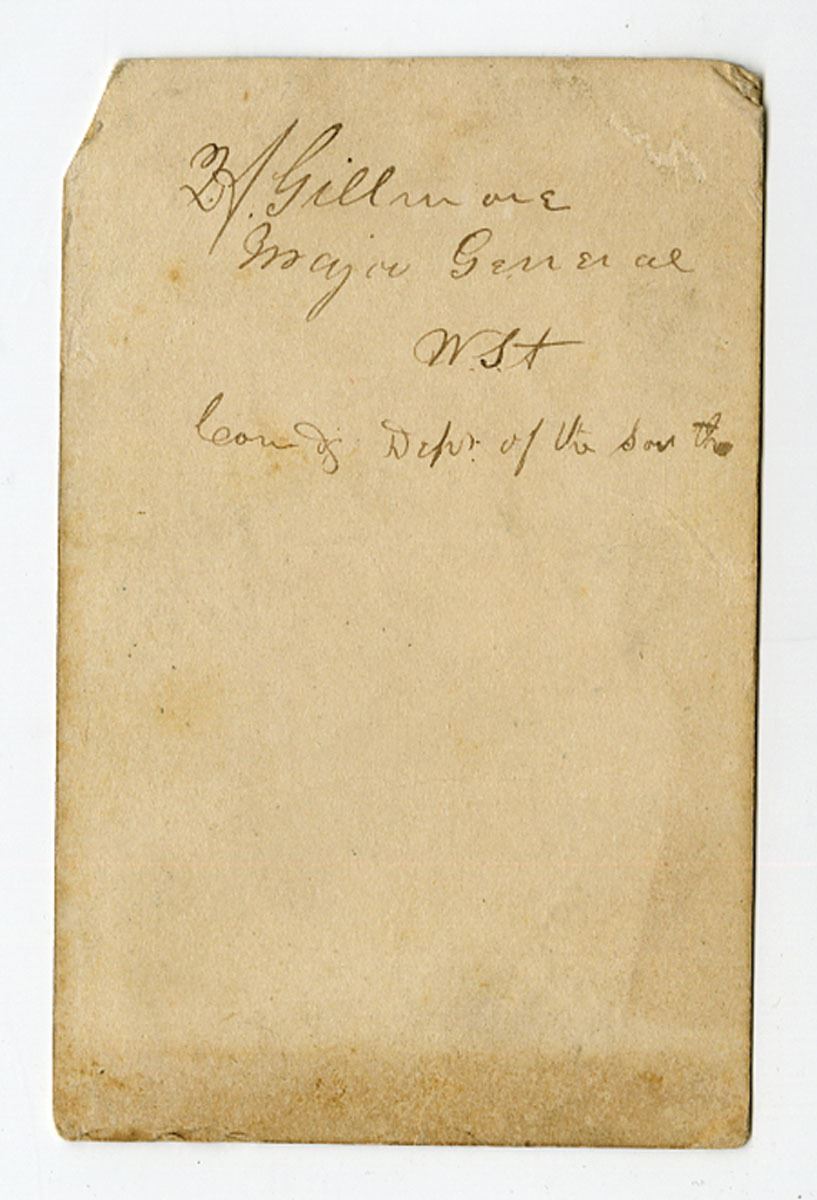 Gillmore
Major General
Com'd'g Dept. of the South